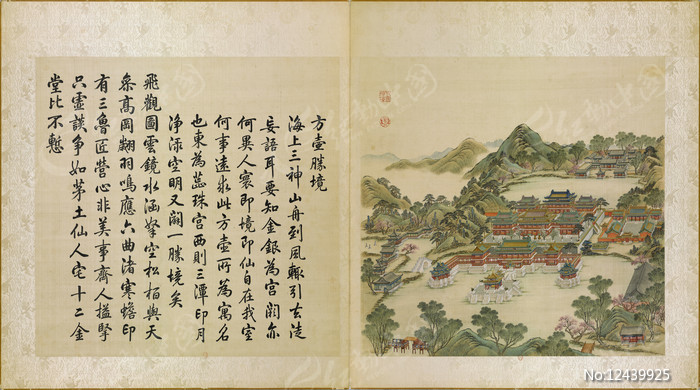 方壺勝境
海上三神山舟到風輒引去徒
妄語耳要知金銀為宮闕亦
何異人寰即境即仙自在我室
何事遠求此方壺所為寓名
也東為蕊珠宮西則三潭印月
淨淥空明又闢一勝境矣
飛觀圖雲鏡水涵拏空松柏與天
叅高岡翽羽鳴應六曲渚寒蟾印
有三魯匠營心非美事齊人搤掔
只虛談爭如茅土仙人宅十二金
堂比不慙
No:12439925